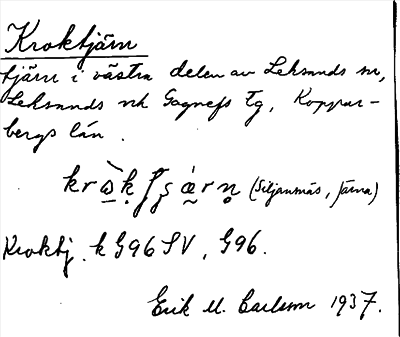 Kroktjärn
tjärn i västra delen av Leksands sn,
Leksands och Gagnefs tg, Koppar-
bergs län.
(Siljansnäs, Järna)
Kroktj. k G96 SV, G96.
Erik M. Carlsson 1937.